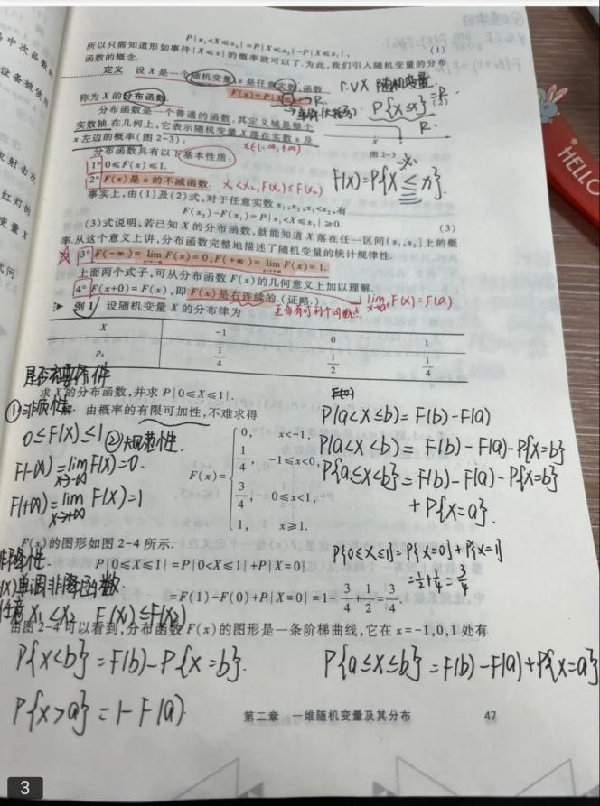 P{x₁<X≤x₂}=P{X≤x₂}-P{X≤x₁},
所以只需知道形如事件{X≤x}的概率就可以了.为此,我们引入随机变量的分布
(1)
函数的概念.
定义 设X是一个随机变量,x是任意实数,函数
F(x)=P{X≤x}
称为X的分布函数.
r.v X 随机变量
P{X≤x}
分布函数是一个普通的函数,其定义域是整个
实数轴.在几何上,它表示随机变量X落在实数x
左边的概率(图2-3),
x∈(-∞,+∞)
图2-3
分布函数具有以下基本性质:
1° 0≤F(x)≤1.
2° F(x)是x的不减函数.
x₁<x₂, F(x₁)≤F(x₂)
F(x)=P{X≤x}.
事实上,由(1)及(2)式,对于任意实数x₁,x₂,x₁<x₂,有
F(x₂)-F(x₁)=P{x₁<X≤x₂}≥0.
(3)
(3)式说明,若已知X的分布函数,就能知道X落在任一区间(x₁,x₂]上的概
率.从这个意义上讲,分布函数完整地描述了随机变量的统计规律性.
3° F(-∞)=lim F(x)=0,F(+∞)=lim F(x)=1.
上面两个式子,可从分布函数F(x)的几何意义上加以理解.
4° F(x+0)=F(x),即F(x)是右连续的.(证略.)
F(x)=F(a)
例1 设随机变量X的分布律为
X -1 0 1
pₖ 1/4 1/2 1/4
是否充要条件
求X的分布函数,并求P{0≤X≤1}.
①非负性
解 由概率的有限可加性,不难求得
0≤F(x)≤1 ②规范性.
F(-∞)=lim F(x)=0.
x→-∞
F(+∞)=lim F(x)=1
x→+∞
F(x)=
0, x<-1,
1/4, -1≤x<0,
3/4, 0≤x<1,
1, x≥1.
P(a<X≤b)=F(b)-F(a)
P(a<X<b)=F(b)-F(a)-P{X=b}
P{a≤X<b}=F(b)-F(a)-P{X=b}
+P{X=a}.
F(x)的图形如图2-4所示.
P{0≤X≤1}=P{X=0}+P{X=1}
=1/2+1/4=3/4
P{0≤X≤1}=P{0<X≤1}+P{X=0}
单调非降函数
=F(1)-F(0)+P{X=0}=1-3/4+1/2=3/4.
x₁<x₂ F(x₁)≤F(x₂)
由图2-4可以看到,分布函数F(x)的图形是一条阶梯曲线,它在x=-1,0,1处有
P{X<b}=F(b)-P{X=b}.
P{a≤X≤b}=F(b)-F(a)+P{X=a}
P{X>a}=1-F(a)
第二章 一维随机变量及其分布 47
HELLO
3